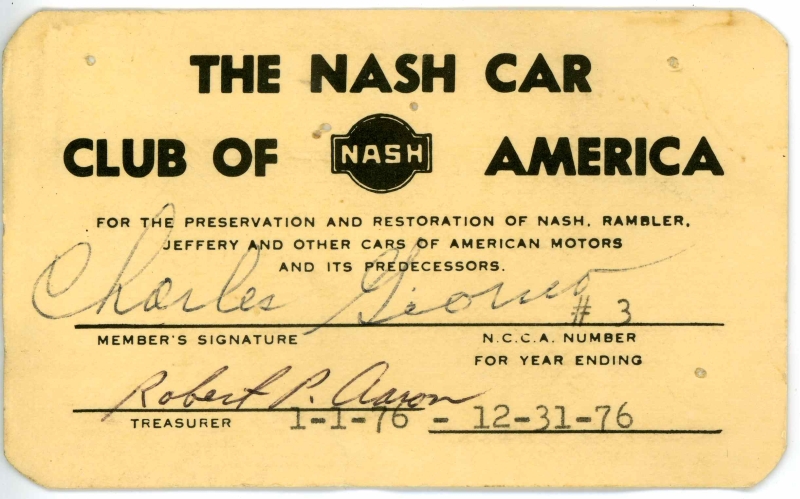 THE NASH CAR
CLUB OF NASH AMERICA
FOR THE PRESERVATION AND RESTORATION OF NASH, RAMBLER,
JEFFERY AND OTHER CARS OF AMERICAN MOTORS
AND ITS PREDECESSORS.
Charles
# 3
MEMBER'S SIGNATURE N.C.C.A. NUMBER
FOR YEAR ENDING
Robert P. Aaron
1-1-76 - 12-31-76
TREASURER